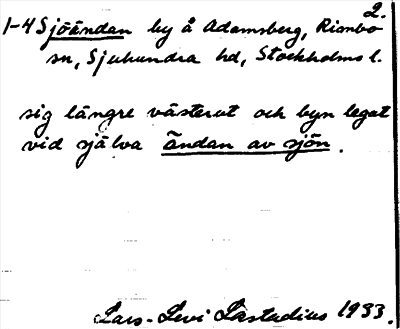 2.
1-4 Sjöändan by å Adamsberg, Rimbo
sn, Sjuhundra hd, Stockholms l.
sig längre västerut och byn legat
vid själva ändan av sjön.
Lars-Levi Læstadius 1933.